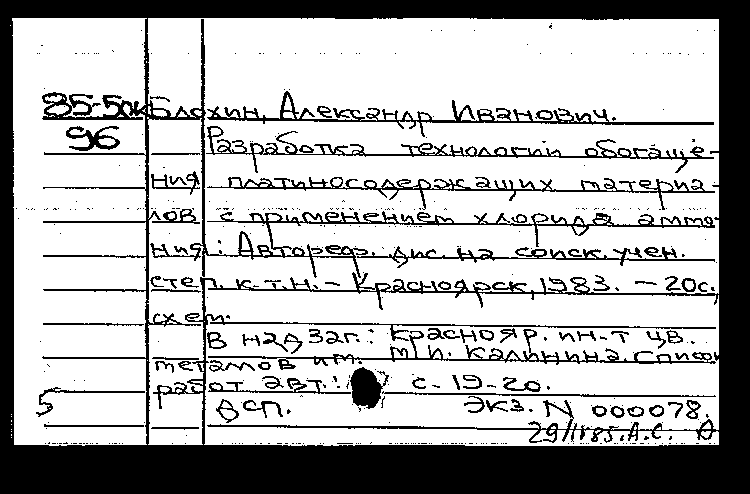 85-5ок Блохин, Александр Иванович.
96 Разработка технологии обогаще-
ния платиносодержащих материа-
лов с применением хлорида аммо
ния: Автореф. дис. на соиск. учен.
степ. к.т.н. - Красноярск, 1983. - 20с.,
схем.
В надзаг.: Краснояр. ин-т цв.
металлов им. М.И. Калинина. Список
работ авт.: с. 19-20.
5 ДСП. Экз. N 000078.
29/IV85. А.С.